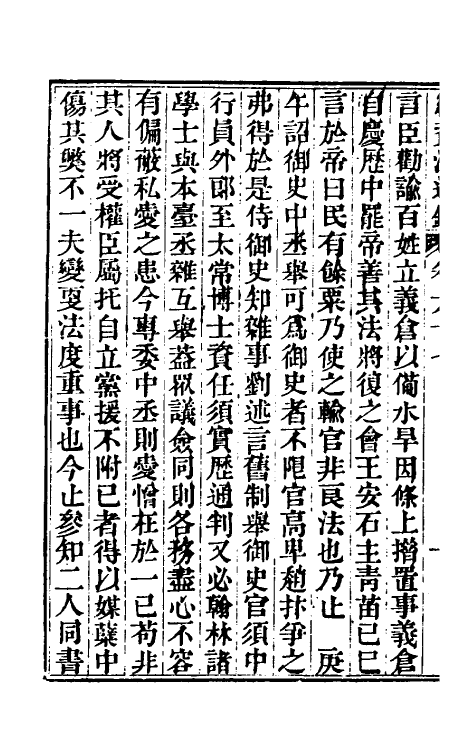 言臣勸諭百姓立義倉以備水旱因條上措置事義倉
自慶歷中罷帝善其法將復之會王安石主青苗已巳
言於帝曰民有餘粟乃使之輸官非良法也乃止　庚
午詔御史中丞舉可爲御史者不限官高卑趙抃爭之
弗得於是侍御史知雜事劉述言舊制舉御史官須中
行員外郎至太常博士資任須實歷通判又必翰林諸
學士與本臺丞雜互舉葢眾議僉同則各務盡心不容
有偏蔽私愛之患今專委中丞則愛憎在於一已苟非
其人將受權臣屬托自立黨援不附已者得以媒糵中
傷其獘不一夫變更法度重事也今止參知二人同書